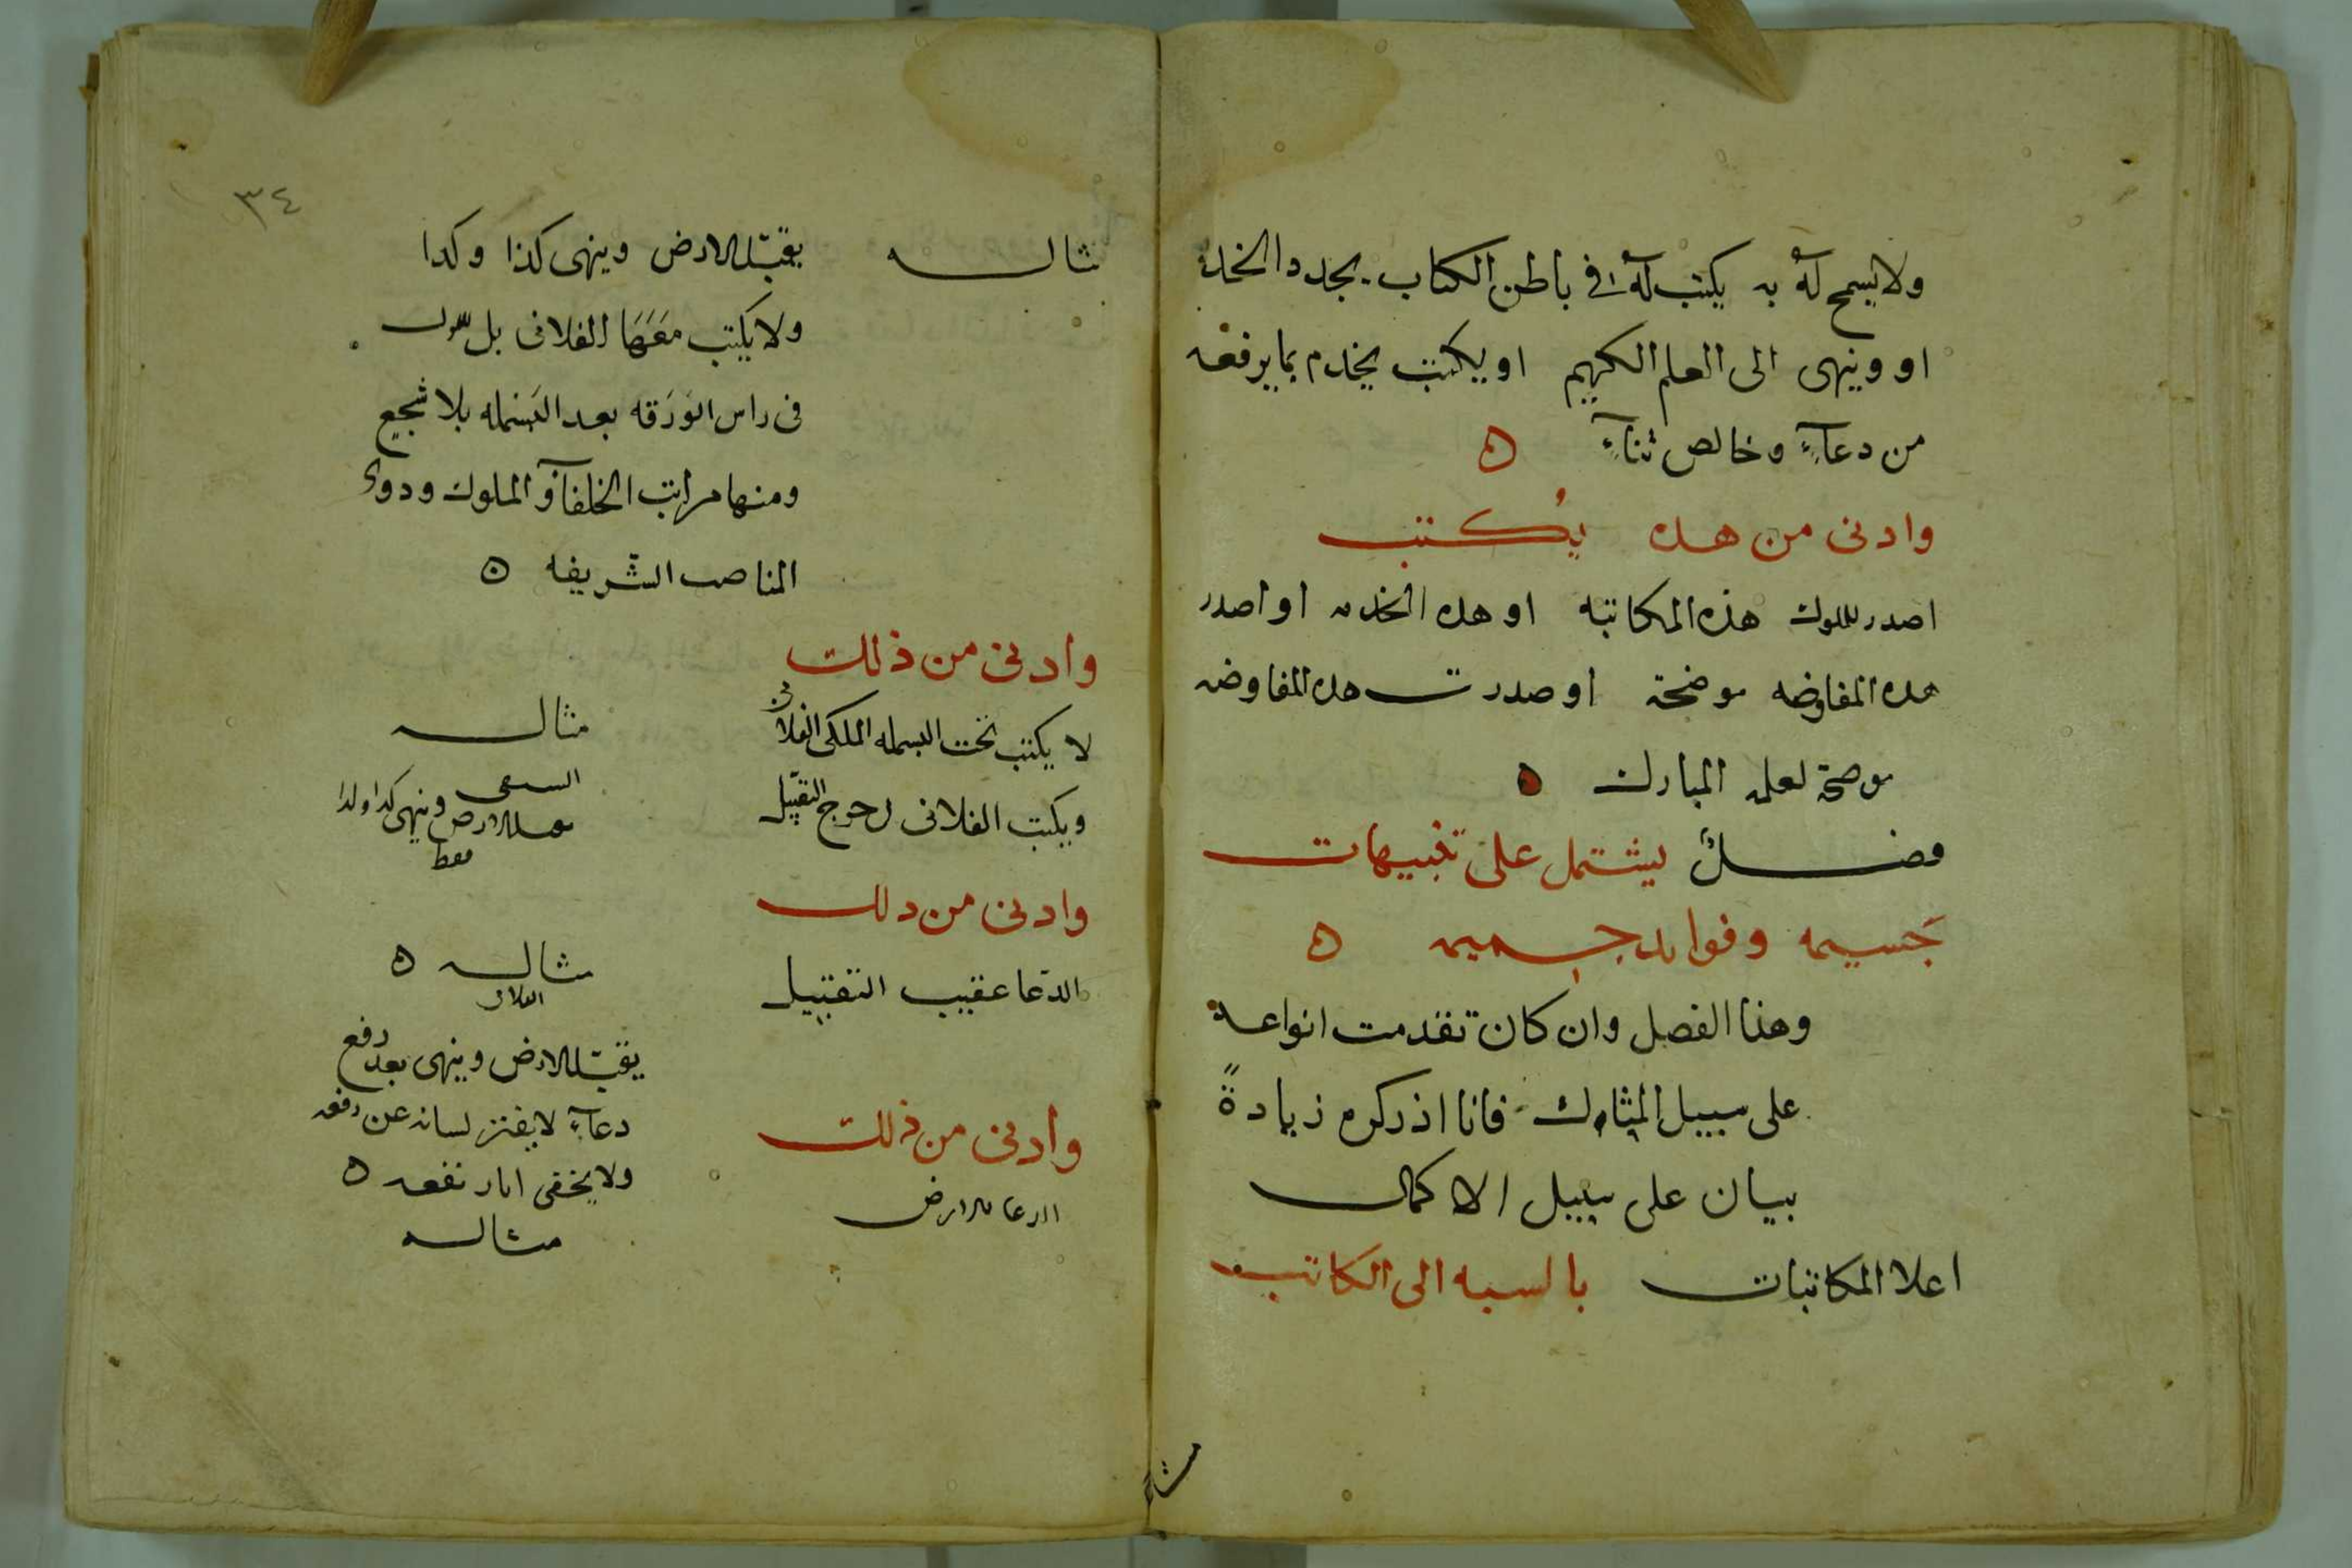 ولا يسمح له به يكتب له في باطن الكتاب يجدد الخدمة
او وينهى الى العلم الكريم او يكتب يخدم بما يرفعه
من دعآء وخالص ثنآء ه
وادنى من هده يُكتب
اصدر المملوك هذه المكاتبه او هده الخدمه او اصدر
هده المفاوضه موضحة او صدرت هده المفاوضه
موضحة لعلمه المبارك ه
فصل يشتمل على تنبيهات
جَسيمه وفوايد جسيمه ه
وهذا الفصل وان كان تقدمت انواعه
على سبيل المشاركة فانا اذكره زيادةً
بيان على سبيل الاكمال
اعلا المكاتبات بالنسبه الى الكاتب
مثا
٣٤
مثاله يقبّل الارض وينهى كذا وكدا
ولا يكتب معَهَا الفلانى بل
فى راس الوَرَقه بعد البسمله بلا سجع
ومنها مراتب الخلفآ والملوك ودوى
المناصب الشريفه ه
وادنى من ذلك
مثاله
لا يكتب تحت البسمله الملكى الفلانى
ويكتب الفلانى التقبيل
يقبل الارض وينهى كدا وكدا
فقط
وادنى من دلك
مثاله ه
الفلانى
الدّعا عقيب التقبيل
يقبّل الارض وينهى بعد رفع
دعآء لا يفتر لسانه عن رفعه
ولا يخفى اثار نفعه ه
وادنى من ذلك
الدعا للارض
مثاله